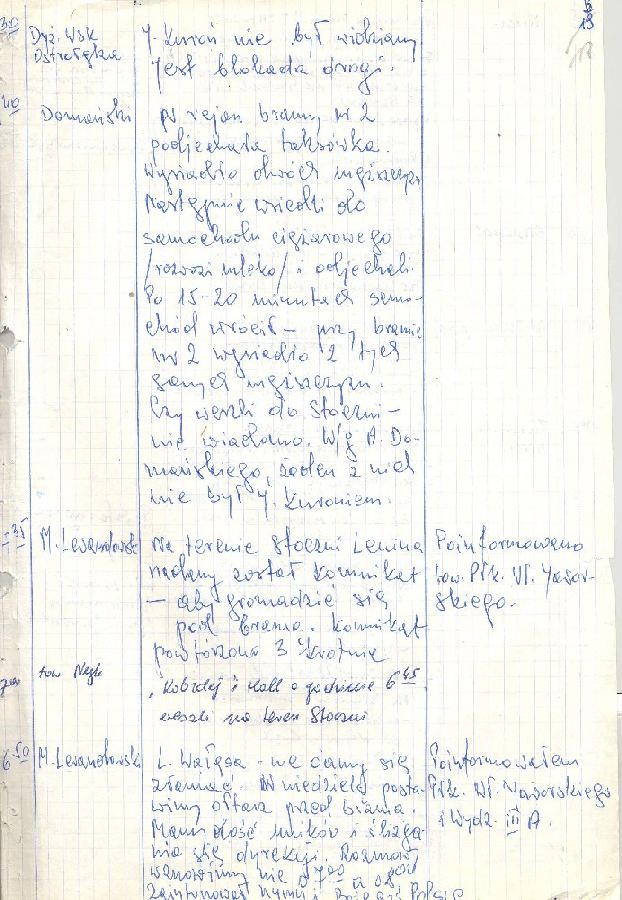 30
Dyż. Wsk
Ostrołęka
J. Kuroń nie był widziany
Jest blokada drogi.
40
Domański
W rejon bramy nr 2
podjechała taksówka.
Wysiadło dwóch mężczyzn
Następnie wsiedli do
samochodu ciężarowego
/rozwozi mleko/ i odjechali.
Po 15-20 minutach samo-
chód wrócił – przy bramie
nr 2 wysiadło 2 tych
samych mężczyzn.
Czy weszli do Stoczni –
nie wiadomo. W/g A. Do-
mańskiego, żaden z nich
nie był J. Kuroniem.
35
M. Lewandowski
Na terenie Stoczni Lenina
nadany został komunikat
– aby gromadzić się
pod bramą. Komunikat
powtórzono 3 krotnie
Poinformowano
tow. Płk. Wł. Jawor-
skiego.
tow
Kobzdej i Koll o godzinie 6 45
weszli na teren Stoczni
6 50
M. Lewandowski
L. Wałęsa – nie damy się
złamać. W niedzielę posta-
wimy ołtarz przed bramą.
Mamy dość uników i ślizga-
nia się dyrekcji. Rozmowy
wznowimy nie o 7 00 a o 8 00
Zaintonował hymn i Boże coś Polskę
Poinformowałem
Płk. Wł. Jaworskiego
i Wydz. III A.